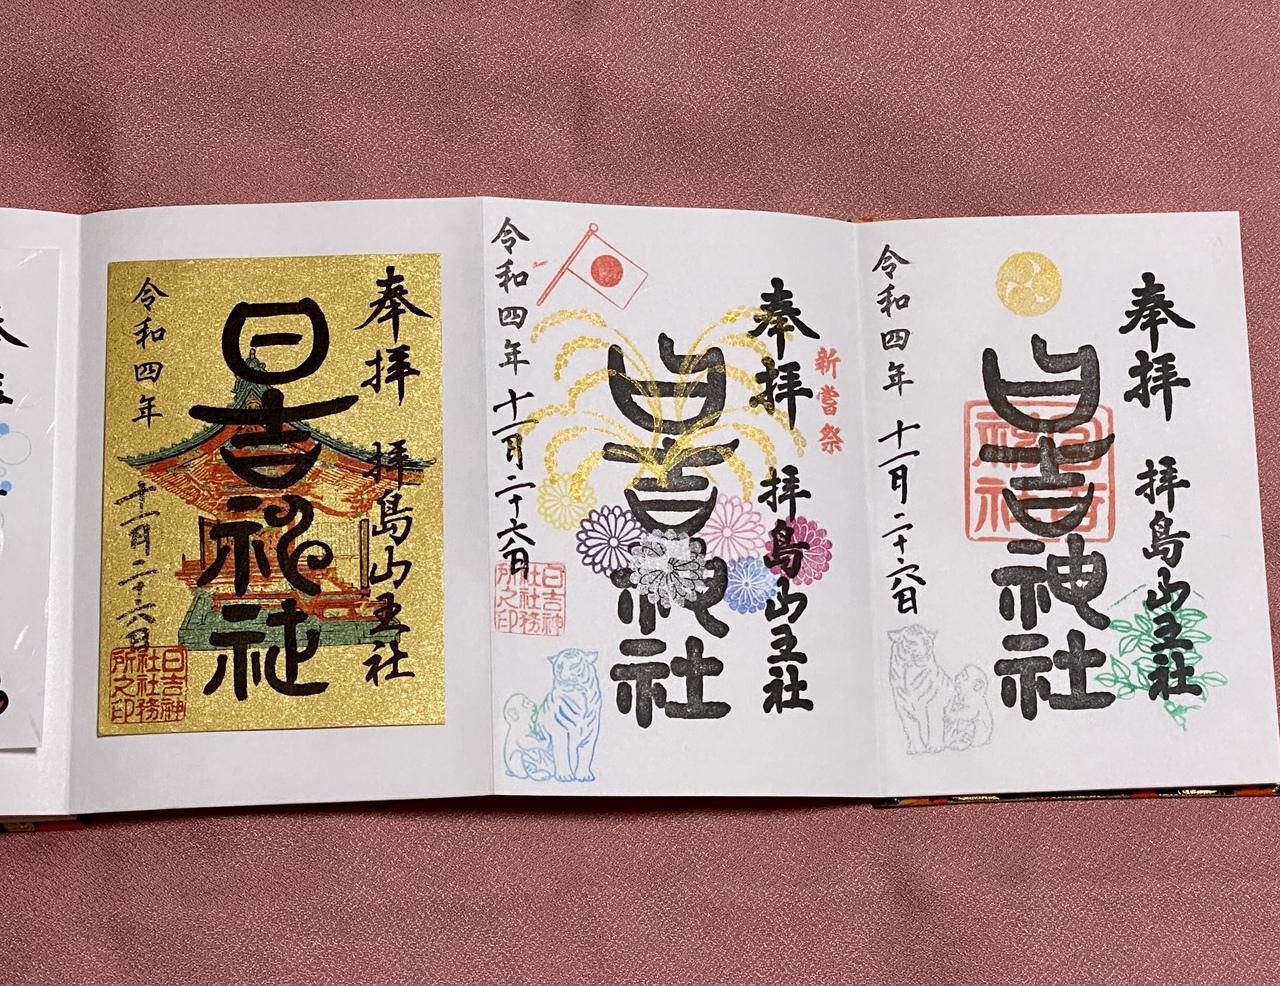 奉拝　拝島山王社
日吉神社
令和四年　十一月二十六日
日吉神社
奉拝　拝島山王社
新嘗祭
日吉神社
令和四年　十一月二十六日
日吉神
社社務
所之印
奉拝　拝島山王社
日吉神社
令和四年　十一月二十六日
日吉神
社社務
所之印